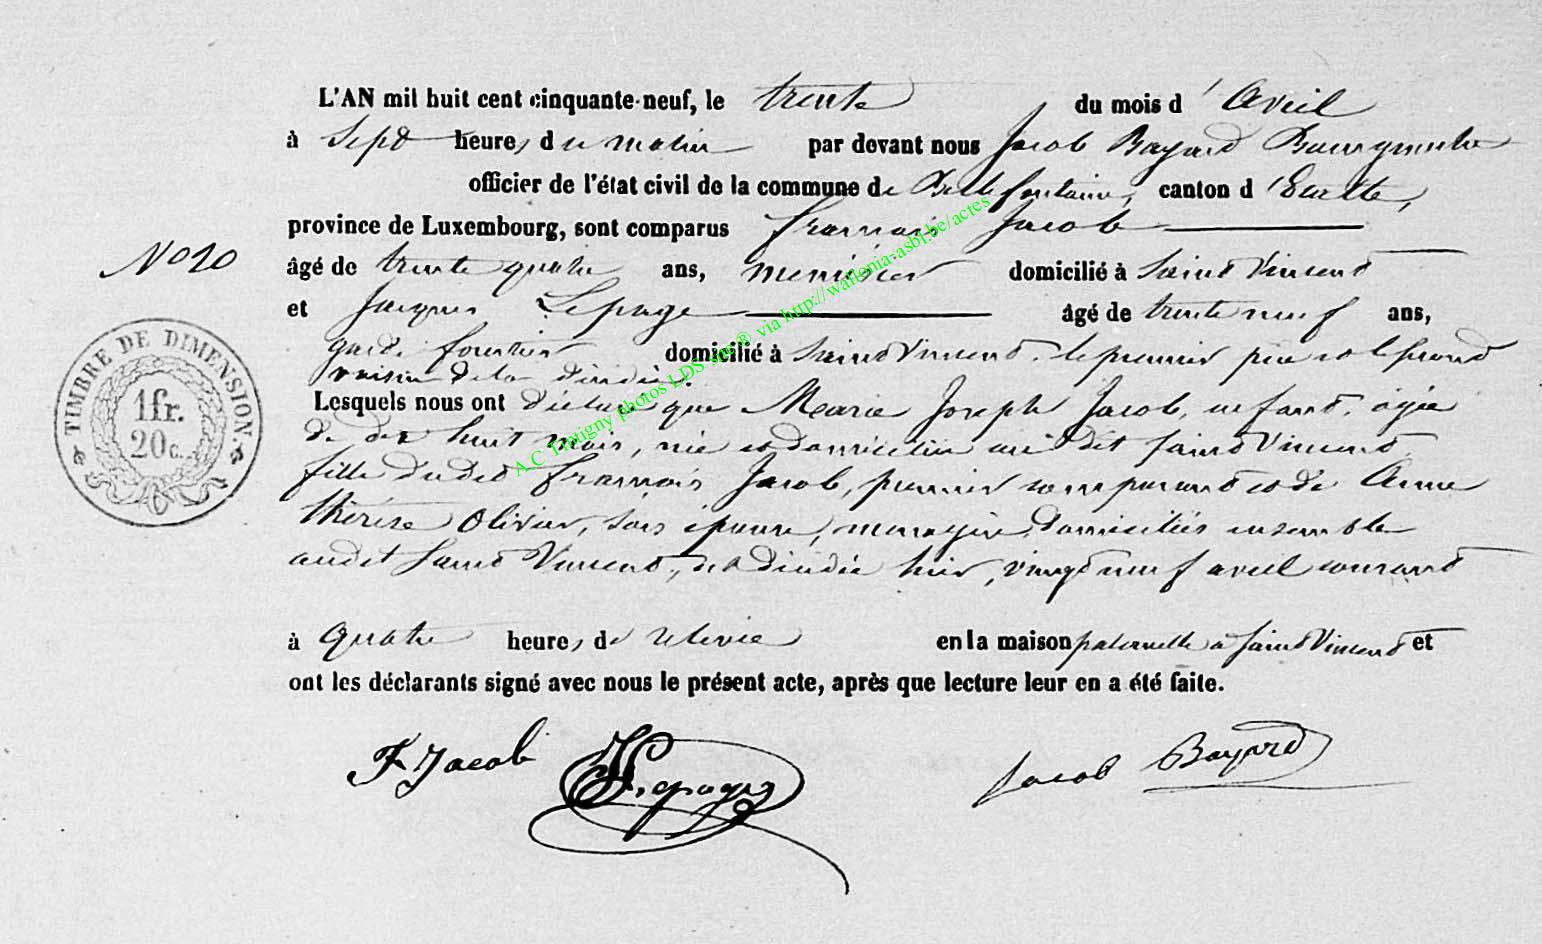 L'AN mil huit cent cinquante-neuf, le trente du mois d'Avril
à Sept heures du matin par devant nous Jacob Bayard Bourgmestre
officier de l'état civil de la commune de Bellefontaine, canton d'Etalle,
province de Luxembourg, sont comparus François Jacob
No 20
âgé de trente quatre ans, domicilié à Saint Vincent
et Jacques Lepage âgé de trente neuf ans,
garde forestier domicilié à Saint Vincent, le premier père et le second
voisin de la décédée.
Lesquels nous ont déclaré que Marie Joseph Jacob, enfant, agée
de dix huit mois, née et domiciliée au dit Saint Vincent,
fille dudit François Jacob, premier comparant et de Anne
thérèse Olivier, son épouse, menagère, domiciliés ensemble
audit Saint Vincent, est décédée hier, vingt neuf avril courant
à quatre heures de relevée en la maison paternelle à Saint Vincent et
ont les déclarants signé avec nous le présent acte, après que lecture leur en a été faite.
F Jacob Lepage Jacob Bayard
TIMBRE DE DIMENSION.
1 fr.
20 c.
A C Tintigny photos LDS sur ® via http://wallonia-asbl.be/actes